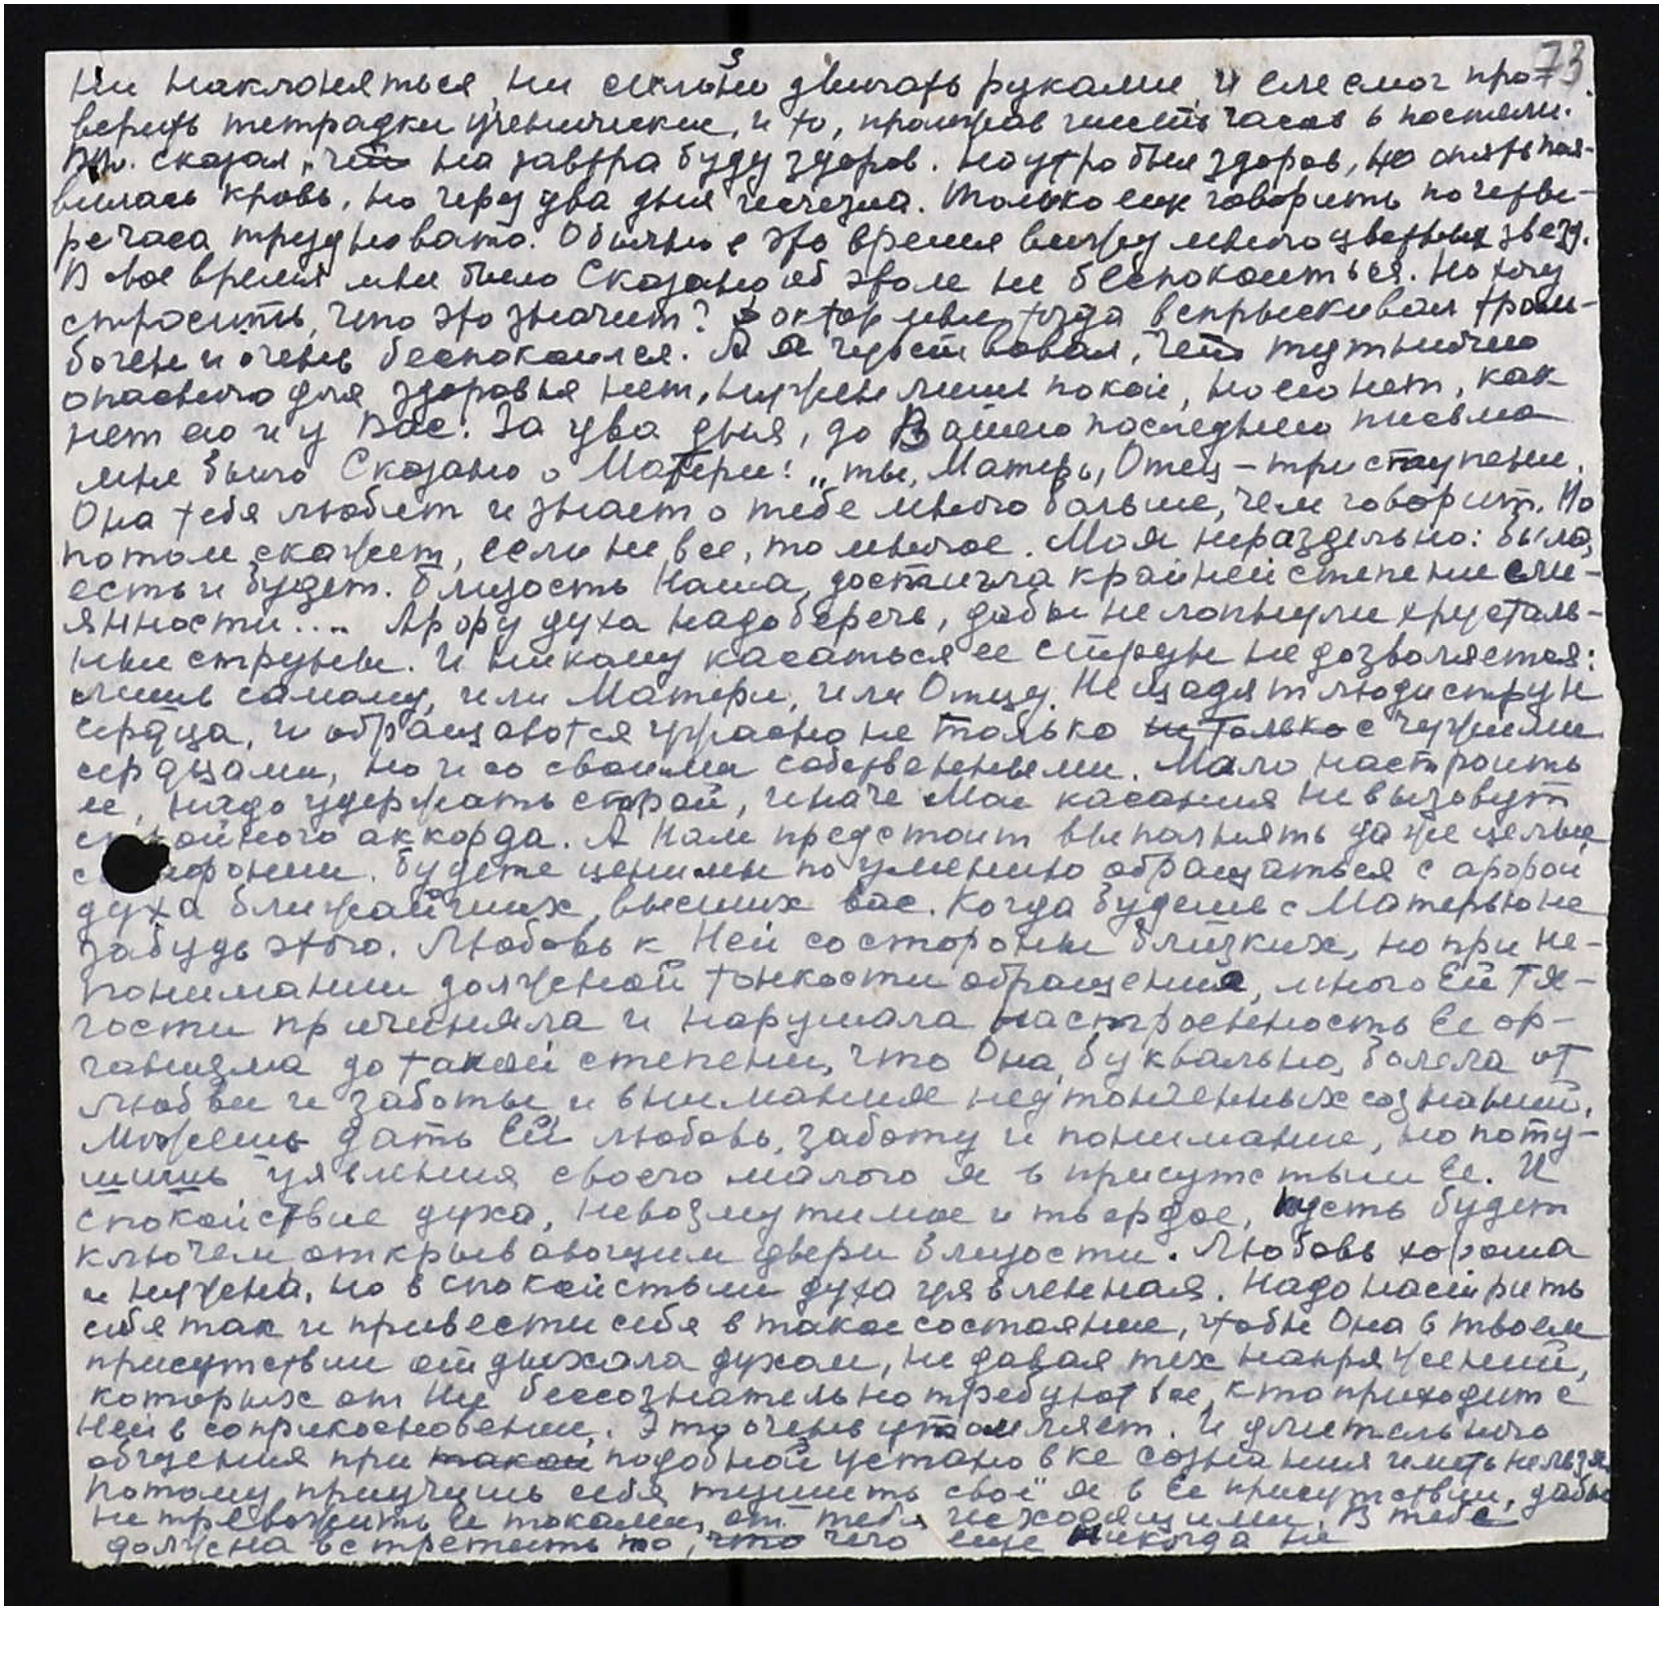 73
ни наклоняться, ни сильно двигать руками, и еле смог про-
верить тетрадки ученические, и то, пролежав шесть часов в постели.
Вл. сказал, что на завтра буду здоров. На утро был здоров, но опять поя-
вилась кровь, но через два дня исчезла. Только еще говорить по четы-
ре часа трудновато. Обычно в это время вижу много цветных звезд.
В свое время мне было Сказано об этом не беспокоиться. Но хочу
спросить, что это значит? Доктор мне тогда вспрыскивал тром-
боген и очень беспокоился. А я чувствовал, что тут ничего
опасного для здоровья нет, нужен лишь покой, но его нет, как
нет его и у Вас. За два дня, до Вашего последнего письма
мне было Сказано о Матери: „ты, Матерь, Отец – три ступени.
Она тебя любит и знает о тебе много больше, чем говорит. Но
потом скажет, если не все, то многое. Моя нераздельно: была,
есть и будет. Близость Наша достигла крайней степени сли-
янности.... Арфу духа надо беречь, дабы не лопнули хрусталь-
ные струны. И никому касаться ее струн не дозволяется:
лишь самому, или Матери, или Отцу. Не щадят люди струн
сердца, и обращаются ужасно не только не только с чужими
сердцами, но и со своими собственными. Мало настроить
ее, надо удержать строй, иначе Мои касания не вызовут
стройного аккорда. А Нам предстоит выполнять даже целые
симфонии. Будете ценимы по умению обращаться с арфой
духа ближайших, высших вас. Когда будешь с Матерью не
забудь этого. Любовь к Ней со стороны близких, но при не-
понимании должной тонкости обращения, много Ей тя-
гости причиняла и нарушала настроенность Ее ор-
ганизма до такой степени, что Она, буквально, болела от
любви и заботы и внимания неутонченных сознаний.
Можешь дать Ей любовь, заботу и понимание, но поту-
шишь уявления своего малого я в присутствии Ее. И
спокойствие духа, невозмутимое и твердое, пусть будет
ключем, открывающим двери близости. Любовь хороша
и нужна, но в спокойствии духа уявленная. Надо настроить
себя так и привести себя в такое состояние, чтобы Она в твоем
присутствии отдыхала духом, не давая тех напряжений,
которых от Нее бессознательно требуют все, кто приходит с
Ней в соприкосновение. Это очень утомляет. И длительного
общения при такой подобной установке сознания иметь нельзя.
Потому, приучишь себя тушить свое „я" в Ее присутствии, дабы
не тревожить Ее токами, от тебя исходящими. В тебе
должна встретить то, что чего еще никогда не